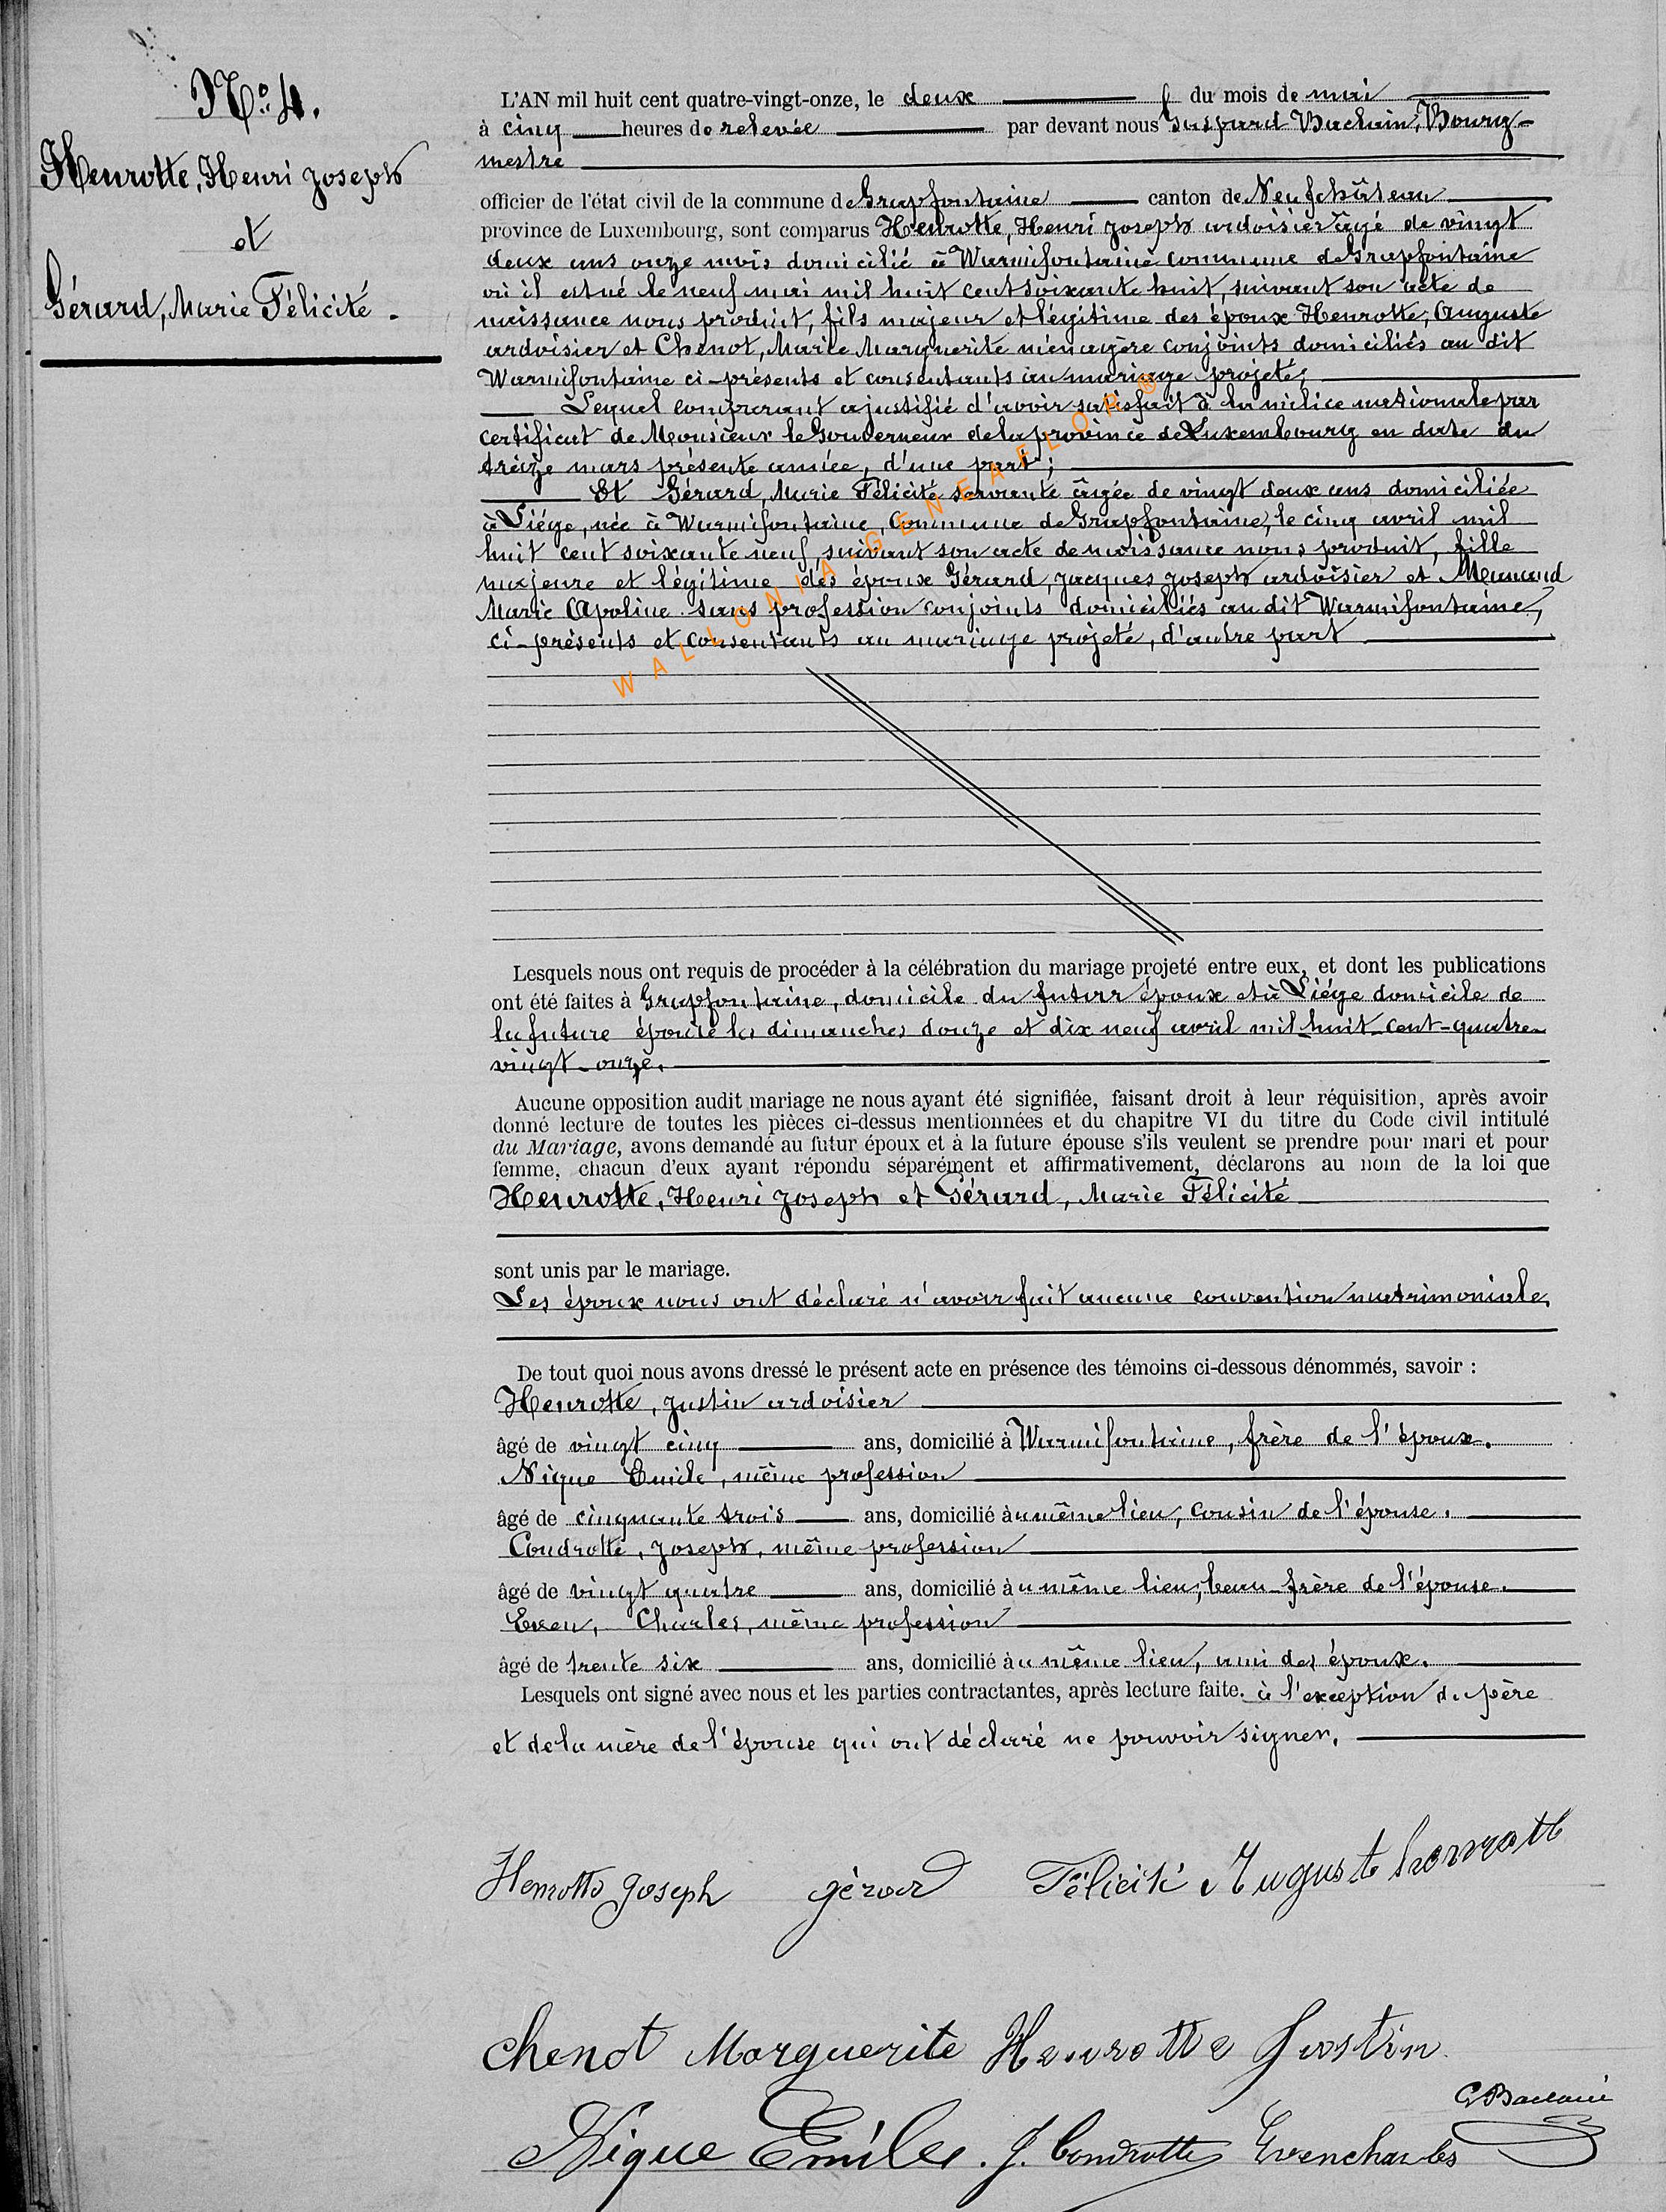 No. 4.
Henrotte, Henri Joseph
et
Gérard, Marie Félicité.
L'AN mil huit cent quatre-vingt-onze, le deux du mois de mai
à cinq heures de relevée par devant nous Gaspard Baclain, Bourg-
mestre
officier de l'état civil de la commune de Grapfontaine canton de Neufchâteau
province de Luxembourg, sont comparus Henrotte, Henri Joseph ardoisier âgé de vingt
deux ans onze mois domicilié à Warmifontaine commune de Grapfontaine
où il est né le neuf mai mil huit cent soixante huit, suivant son acte de
naissance nous produit, fils majeur et légitime des époux Henrotte, Auguste
ardoisier et Chenot, Marie Marguerite ménagère conjoints domiciliés au dit
Warmifontaine ci-présents et consentants au mariage projeté;
Lequel comparant a justifié d'avoir satisfait à la milice nationale par
certificat de Monsieur le Gouverneur de la province de Luxembourg en date du
treize mars présente année, d'une part;
Et Gérard, Marie Félicité servante âgée de vingt deux ans domiciliée
à Liége, née à Warmifontaine, Commune de Grapfontaine, le cinq avril mil
huit cent soixante neuf, suivant son acte de naissance nous produit, fille
majeure et légitime des époux Gérard, Jacques Joseph ardoisier et
Marie Apoline sans profession conjoints domiciliés au dit Warmifontaine,
ci-présents et consentants au mariage projeté, d'autre part
WALLONIA-GENEAFLOR ®
Lesquels nous ont requis de procéder à la célébration du mariage projeté entre eux, et dont les publications
ont été faites à Grapfontaine, domicile du futur époux et à Liége domicile de
la future épouse les dimanches douze et dix neuf avril mil huit-cent-quatre-
vingt-onze.
Aucune opposition audit mariage ne nous ayant été signifiée, faisant droit à leur réquisition, après avoir
donné lecture de toutes les pièces ci-dessus mentionnées et du chapitre VI du titre du Code civil intitulé
du Mariage, avons demandé au futur époux et à la future épouse s'ils veulent se prendre pour mari et pour
femme, chacun d'eux ayant répondu séparément et affirmativement, déclarons au nom de la loi que
Henrotte, Henri Joseph et Gérard, Marie Félicité
sont unis par le mariage.
Les époux nous ont déclaré n'avoir fait aucune convention matrimoniale.
De tout quoi nous avons dressé le présent acte en présence des témoins ci-dessous dénommés, savoir :
Henrotte, Justin ardoisier
âgé de vingt cinq ans, domicilié à Warmifontaine, frère de l'époux.
Nique Emile, même profession
âgé de cinquante trois ans, domicilié au même lieu, cousin de l'épouse.
Condrotte, Joseph, même profession
âgé de vingt quatre ans, domicilié au même lieu, beau-frère de l'épouse.
Even, Charles, même profession
âgé de trente six ans, domicilié au même lieu, ami des époux.
Lesquels ont signé avec nous et les parties contractantes, après lecture faite. à l'exception du père
et de la mère de l'épouse qui ont déclaré ne pouvoir signer.
Henrotte Joseph gérard Félicité Auguste henrotte
Chenot Marguerite Henrotte Justin
G Baclain
Nique Emile. J. Condrotte Even charles